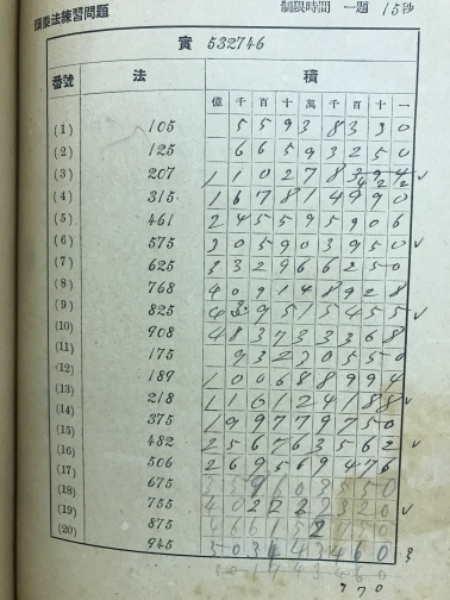 順乗法練習問題
制限時間 一題 15秒
實 532746
番號 法 積
億 千 百 十 萬 千 百 十 一
(1) 105 55938330
(2) 125 66593250
(3) 207 110278394 422 ✓
(4) 315 167814990
(5) 461 245595906
(6) 575 305903950 ✓
(7) 625 332966250
(8) 768 409148928
(9) 825 439515455 ✓
(10) 908 483733368
(11) 175 93230550
(12) 189 100688994
(13) 218 ✓
(14) 375 199779750
(15) 482 256763562 ✓
(16) 506 269569476
(17) 675
(18) 755 402222320 ✓
(19) 875
(20) 945 503443460
770